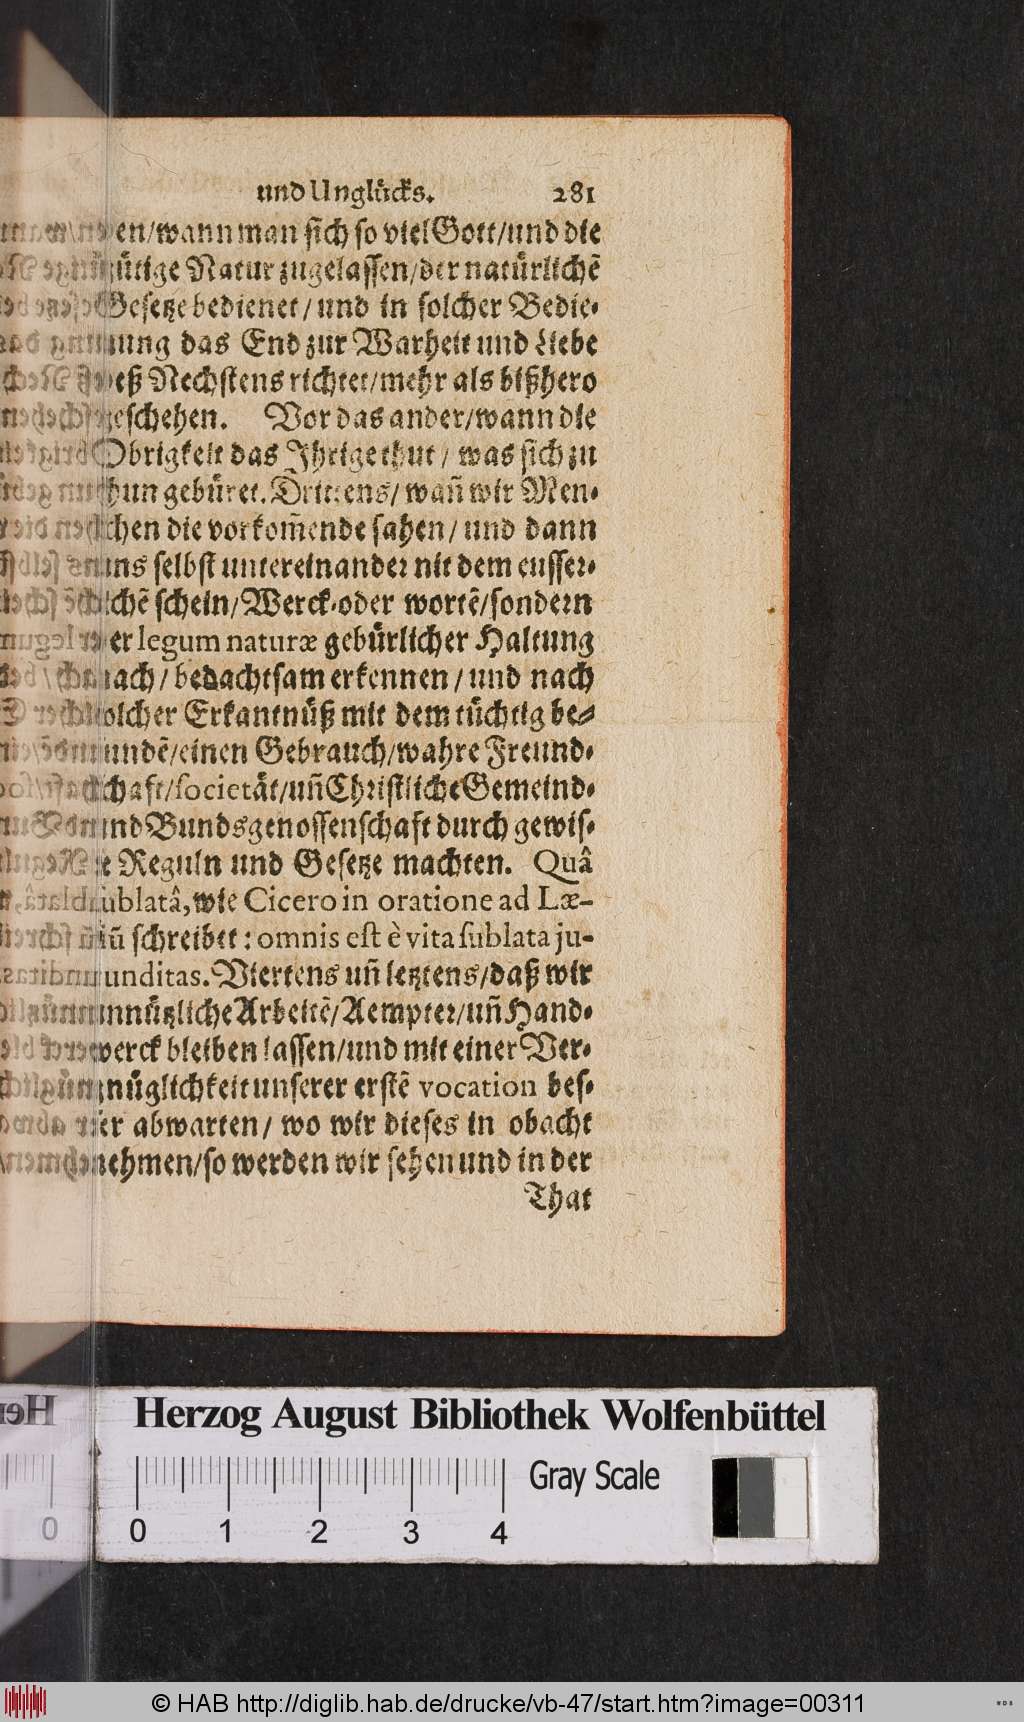 und Unglücks. 281
en/wann man sich so viel Gott/und die
gütige Natur zugelassen/der natürlichē
Gesetze bedienet/und in solcher Bedie-
nung das End zur Warheit und Liebe
deß Nechstens richtet/mehr als bißhero
geschehen. Vor das ander/wann die
Obrigkeit das Ihrige thut/was sich zu
thun gebüret. Drittens/wañ wir Men-
schen die vorkom̃ende sahen/und dann
uns selbst untereinander nit dem eusser-
lichē schein/Werck-oder wortē/sondern
der legum naturæ gebürlicher Haltung
nach/bedachtsam erkennen/und nach
solcher Erkantnüß mit dem tüchtig be-
fundē/einen Gebrauch/wahre Freund-
schaft/societät/uñ Christliche Gemeind-
und Bundsgenossenschaft durch gewis-
se Reguln und Gesetze machten. Quâ
sublatâ, wie Cicero in oratione ad Læ-
liū schreibet: omnis est è vita sublata ju-
cunditas. Viertens uñ letztens/daß wir
unnützliche Arbeitē/Aempter/uñ Hand-
werck bleiben lassen/und mit einer Ver-
gnüglichkeit unserer erstē vocation bes-
ser abwarten/wo wir dieses in obacht
nehmen/so werden wir sehen und in der
That
Herzog August Bibliothek Wolfenbüttel
Gray Scale
0 0 1 2 3 4
© HAB http://diglib.hab.de/drucke/vb-47/start.htm?image=00311